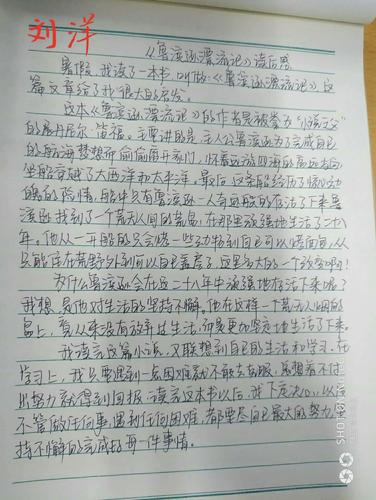 刘洋
《鲁滨逊漂流记》读后感
暑假,我读了一本书,叫做《鲁滨逊漂流记》这
篇文章给了我很大的启发。
这本《鲁滨逊漂流记》的作者是被誉为"小说之父"
的丹尼尔·笛福。主要讲的是:主人公鲁滨逊为了完成自己
的航海梦想而偷偷离开家门,怀着远游四海的高远志向
坐船穿越了大西洋和太平洋。最后这条船经历了惊心动
魄的险情,船中只有鲁滨逊一人奇迹般的存活了下来鲁
滨逊找到了一个荒无人烟的荒岛,在那里顽强地生活了二十八
年。他从一开始的只会烤一些动物到自己可以烤面包,从
只能住在荒野外到可以自己盖房子,这是多大的一个改变啊!
为什么鲁滨逊会在这二十八年中顽强地存活下来呢?
我想,是他对生活的坚持不懈。他在这样一个荒无人烟的
岛上,看从来没有放弃过生活,而是更加坚定地生活了下来。
我读完这篇小说,又联想到自己的生活和学习。在
学习上,我只要遇到一点困难就不敢去克服,总想着不付
出努力就得到回报。读完这本书以后,我下定决心,以后
不管做任何事,遇到任何困难,都要尽自己最大的努力,坚
持不懈的完成好每一件事情。
SHOT ON